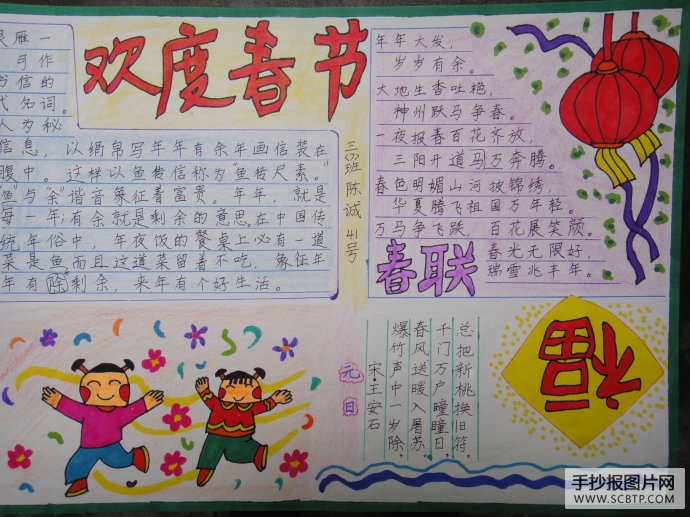 欢度春节
雁一
可作
信的
代名词。
人为秘
信息，以绢帛写年年有余年画信装在
腹中。这样以鱼传信称为“鱼传尺素。”
鱼”与“余”谐音象征着富贵。年年，就是
每一年；有余就是剩余的意思。在中国传
统年俗中，年夜饭的餐桌上必有一道
菜是鱼而且这道菜留着不吃，象征年
年有除剩余，来年有个好生活。
班 陈诚 41号
年年大发，
岁岁有余。
大地生香吐艳，
神州跃马争春。
一夜报春百花齐放，
三阳开道马万奔腾。
春色明媚山河披锦绣，
华夏腾飞祖国万年轻。
万马争飞跃，百花展笑颜。
春联
春光无限好，
瑞雪兆丰年。
元日
宋·王安石
爆竹声中一岁除，
春风送暖入屠苏。
千门万户瞳瞳日，
总把新桃换旧符。
福
手抄报图片网
WWW.SCBTP.COM